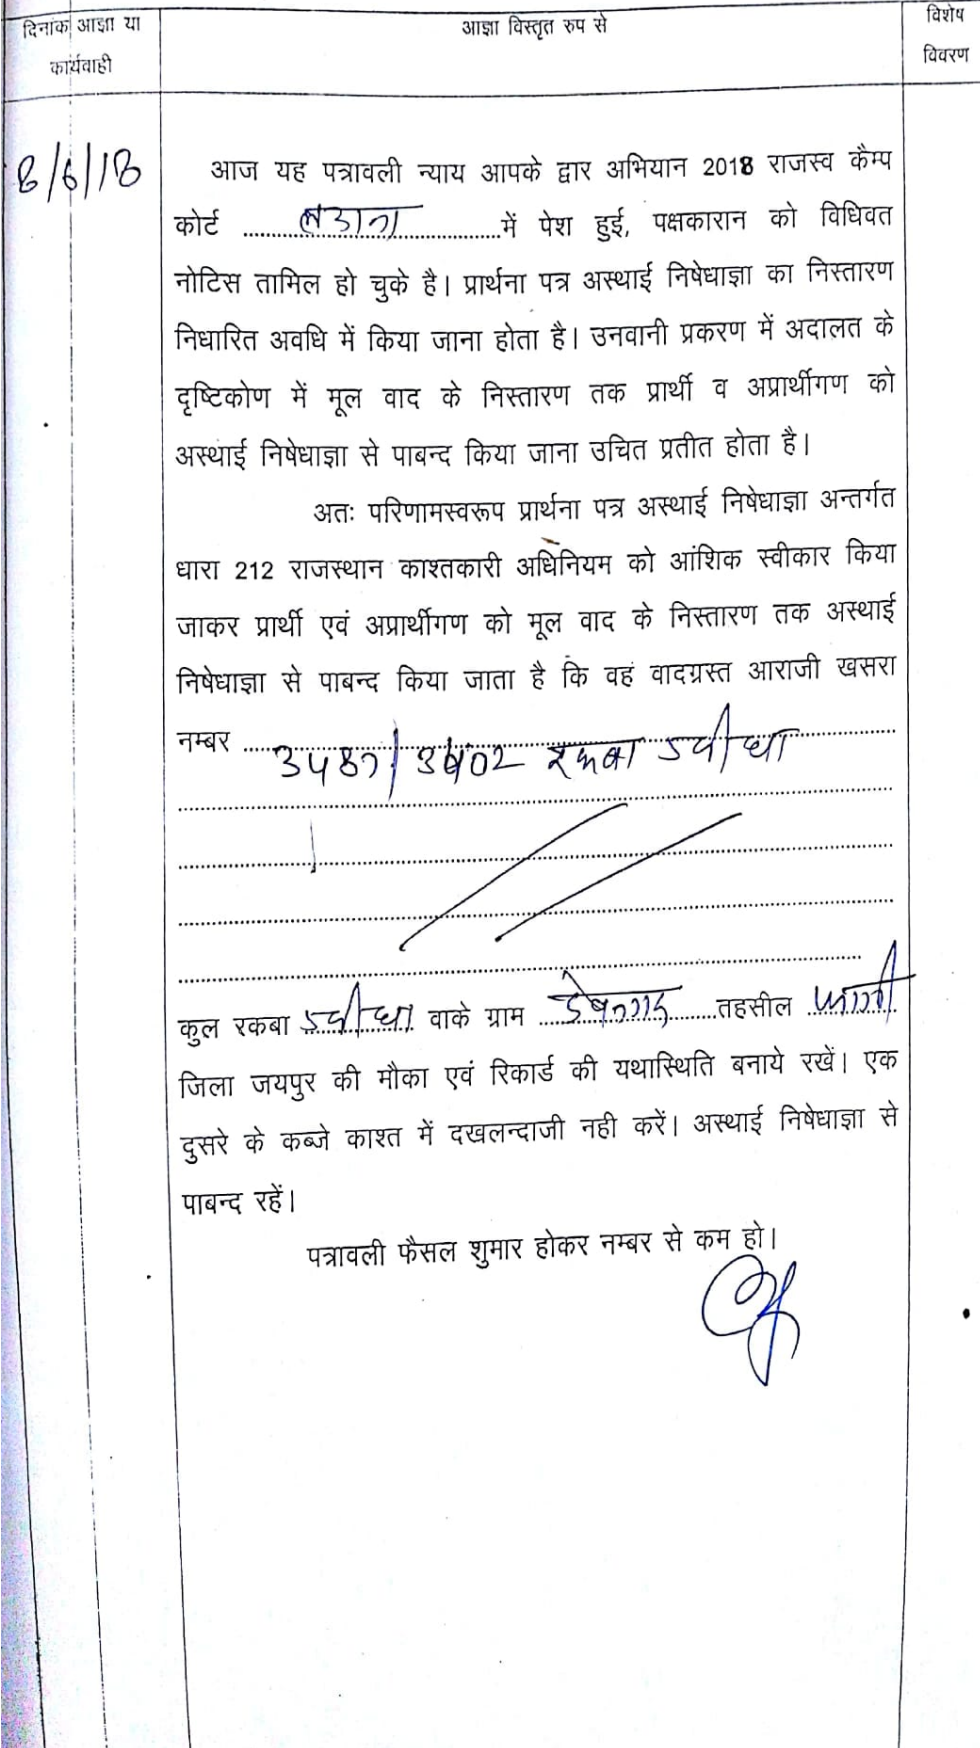 दिनांक आज्ञा या
कार्यवाही
आज्ञा विस्तृत रुप से
विशेष
विवरण
8/6/18
आज यह पत्रावली न्याय आपके द्वार अभियान 2018 राजस्व कैम्प
कोर्ट ........लदाना........में पेश हुई, पक्षकारान को विधिवत
नोटिस तामिल हो चुके है। प्रार्थना पत्र अस्थाई निषेधाज्ञा का निस्तारण
निधारित अवधि में किया जाना होता है। उनवानी प्रकरण में अदालत के
दृष्टिकोण में मूल वाद के निस्तारण तक प्रार्थी व अप्रार्थीगण को
अस्थाई निषेधाज्ञा से पाबन्द किया जाना उचित प्रतीत होता है।
अतः परिणामस्वरूप प्रार्थना पत्र अस्थाई निषेधाज्ञा अन्तर्गत
धारा 212 राजस्थान काश्तकारी अधिनियम को आंशिक स्वीकार किया
जाकर प्रार्थी एवं अप्रार्थीगण को मूल वाद के निस्तारण तक अस्थाई
निषेधाज्ञा से पाबन्द किया जाता है कि वह वादग्रस्त आराजी खसरा
नम्बर ........ रकबा ........ बीघा
कुल रकबा ........ बीघा वाके ग्राम ........तहसील फागी
जिला जयपुर की मौका एवं रिकार्ड की यथास्थिति बनाये रखें। एक
दुसरे के कब्जे काश्त में दखलन्दाजी नही करें। अस्थाई निषेधाज्ञा से
पाबन्द रहें।
पत्रावली फैसल शुमार होकर नम्बर से कम हो।